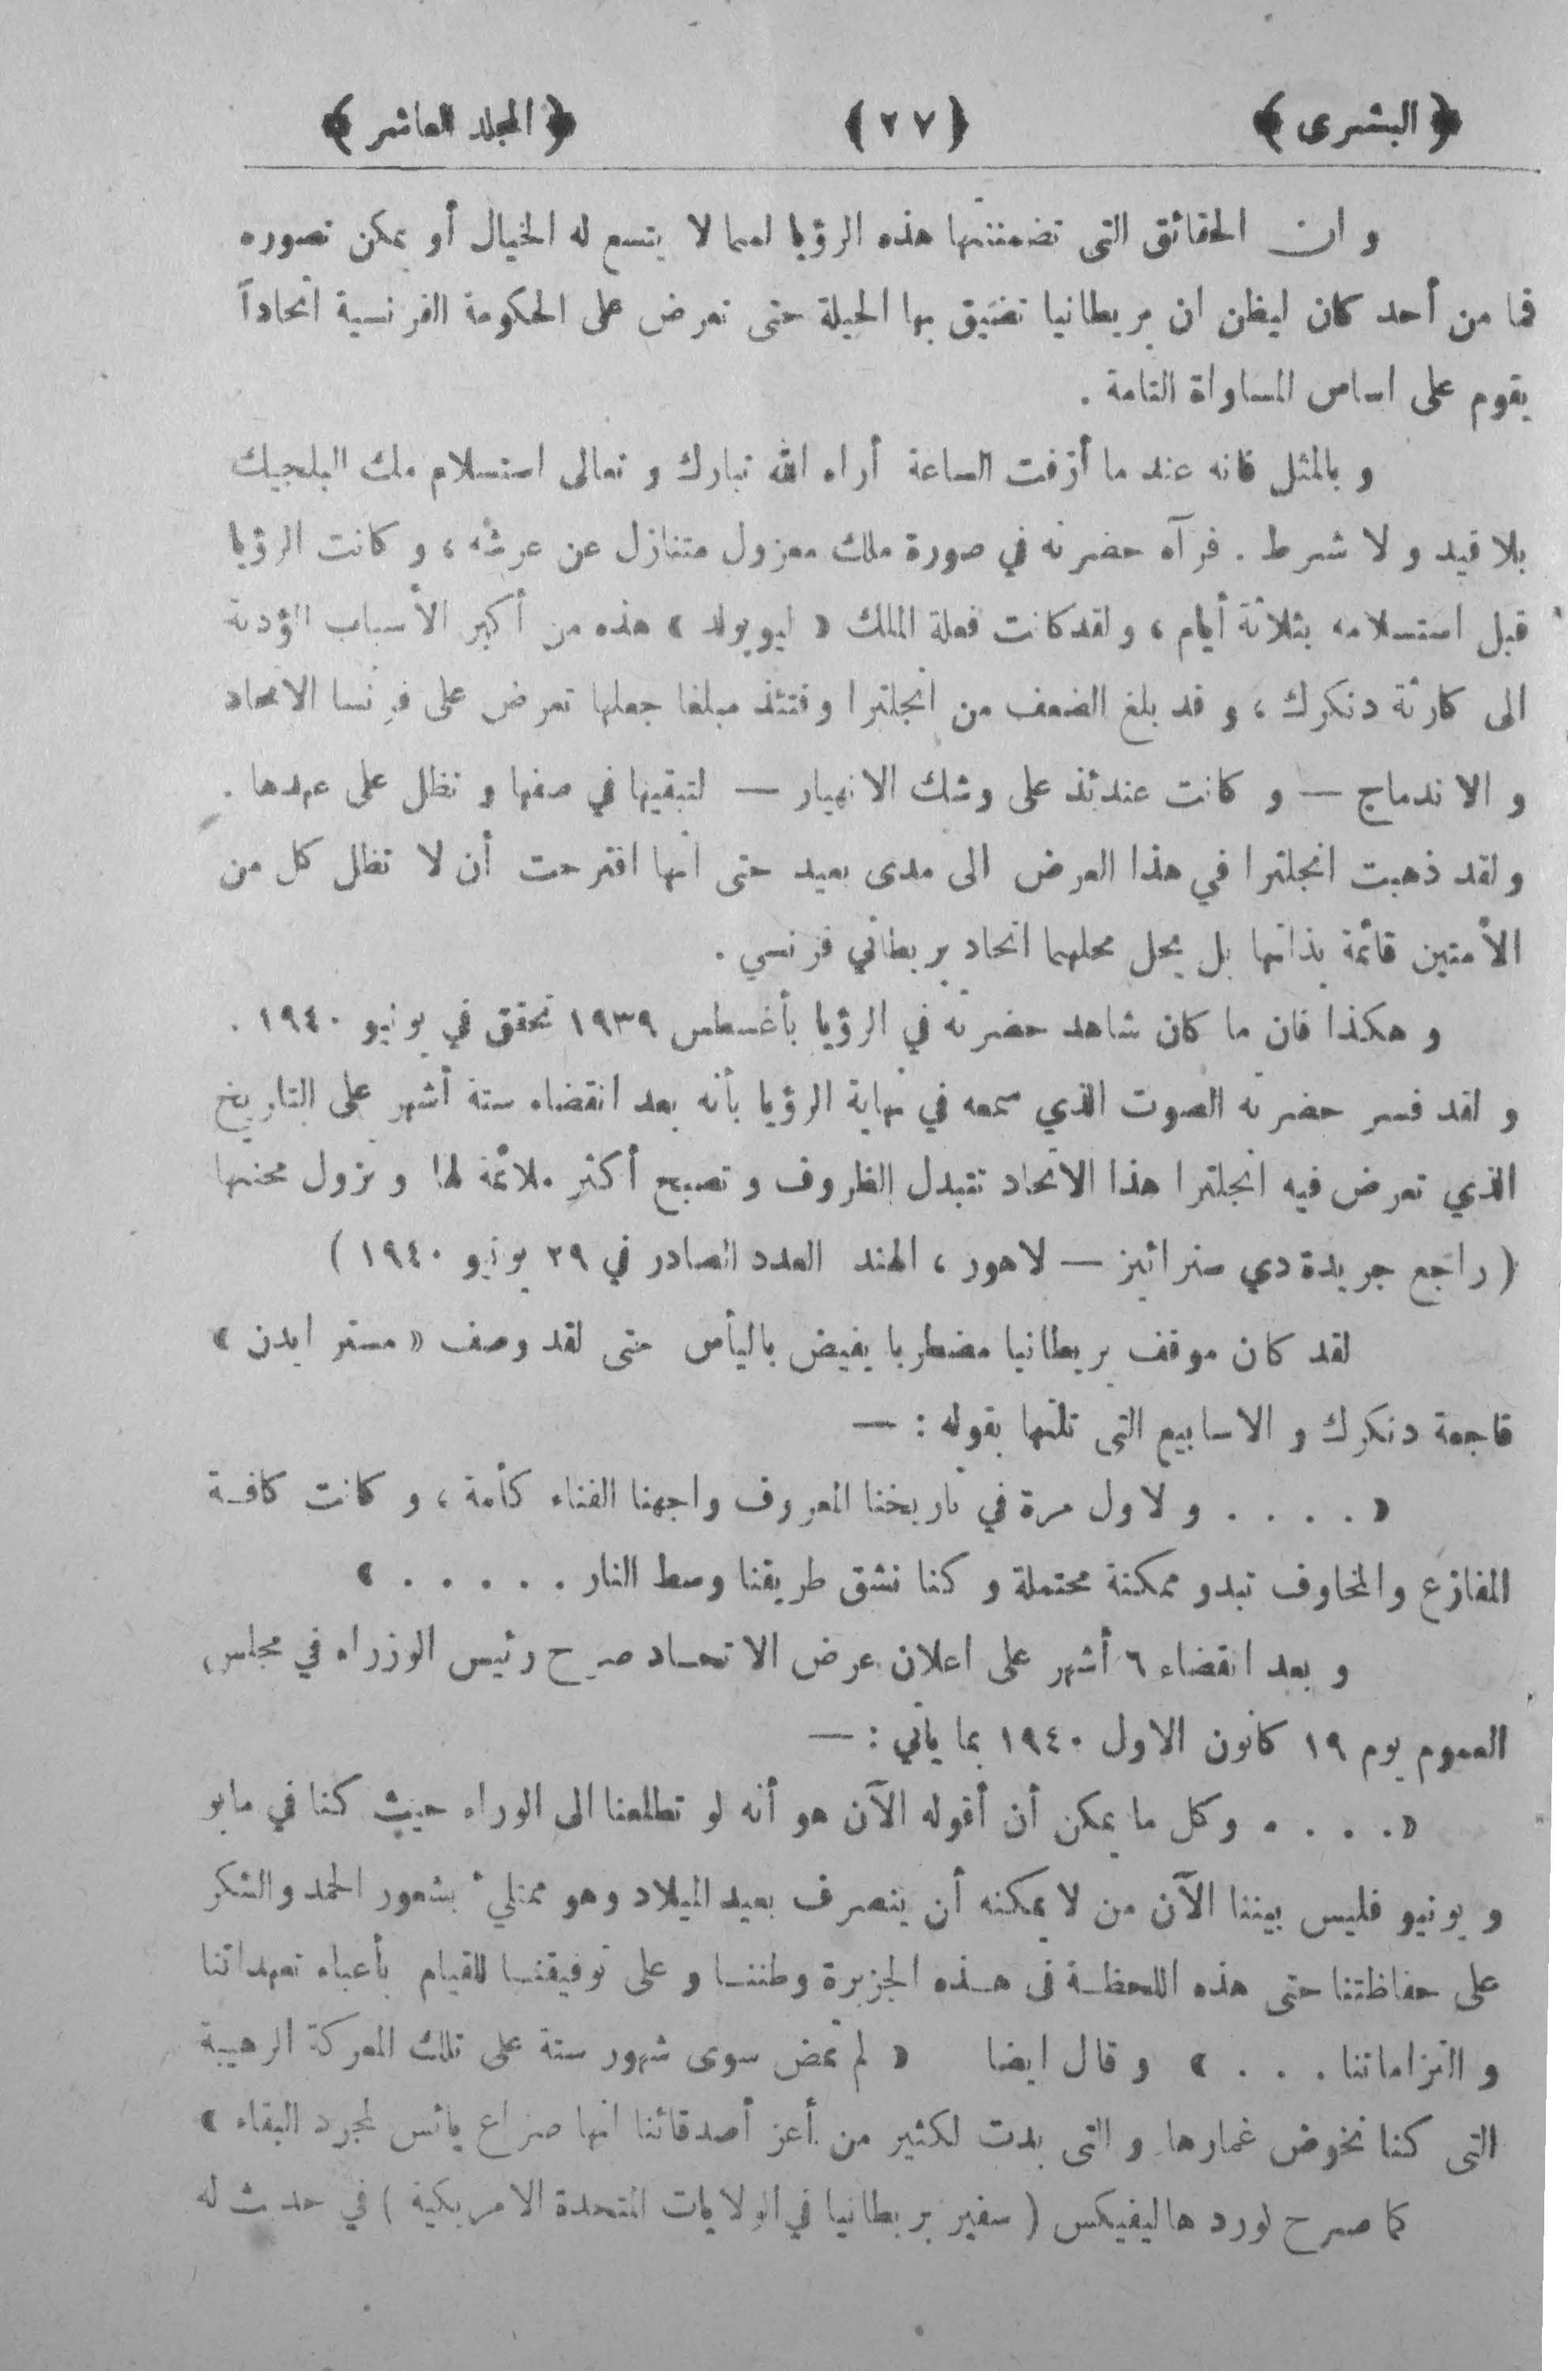 ﴿ البشرى ﴾ ﴿ ٢٧ ﴾ ﴿ المجلد العاشر ﴾
و ان الحقائق التى تضمنتها هذه الرؤيا لمما لا يتسع له الخيال أو يمكن تصوره
فما من أحد كان ليظن ان بريطانيا تضيق بها الحيلة حتى تعرض على الحكومة الفرنسية اتحاداً
يقوم على اساس المساواة التامة .
و بالمثل فانه عند ما أزفت الساعة أراه الله تبارك و تعالى استسلام ملك البلجيك
بلا قيد و لا شرط . فرآه حضرته في صورة ملك معزول متنازل عن عرشه ، و كانت الرؤيا
قبل استسلامه بثلاثة أيام ، و لقد كانت فعلة الملك « ليوبولد » هذه من أكبر الأسباب المؤدية
الى كارثة دنكرك ، و قد بلغ الضعف من انجلترا وقتئذ مبلغا جعلها تعرض على فرنسا الاتحاد
و الاندماج — و كانت عندئذ على وشك الانهيار — لتبقيها في صفها و تظل على عهدها .
و لقد ذهبت انجلترا في هذا العرض الى مدى بعيد حتى انها اقترحت أن لا تظل كل من
الأمتين قائمة بذاتها بل يحل محلهما اتحاد بريطاني فرنسي .
و هكذا فان ما كان شاهد حضرته في الرؤيا بأغسطس ١٩٣٩ تحقق في يونيو ١٩٤٠ .
و لقد فسر حضرته الصوت الذي سمعه في نهاية الرؤيا بأنه بعد انقضاء ستة أشهر على التاريخ
الذي تعرض فيه انجلترا هذا الاتحاد تتبدل الظروف و تصبح أكثر ملائمة لها و تزول محنتها
( راجع جريدة دي سنرائيز — لاهور ، الهند العدد الصادر في ٢٩ يونيو ١٩٤٠ )
لقد كان موقف بريطانيا مضطربا يفيض باليأس حتى لقد وصف « مستر ايدن »
فاجعة دنكرك و الاسابيع التى تلتها بقوله : —
« . . . . و لاول مرة في تاريخنا المعروف واجهنا الفناء كأمة ، و كانت كافة
المفازع والمخاوف تبدو ممكنة محتملة و كنا نشق طريقنا وسط النار . . . . . »
و بعد انقضاء ٦ أشهر على اعلان عرض الاتحاد صرح رئيس الوزراء في مجلس
العموم يوم ١٩ كانون الاول ١٩٤٠ بما يأتي : —
« . . . . وكل ما يمكن أن أقوله الآن هو أنه لو تطلعنا الى الوراء حيث كنا في مايو
و يونيو فليس بيننا الآن من لا يمكنه أن ينصرف بعيد الميلاد وهو ممتليء بشعور الحمد والشكر
على حفاظتنا حتى هذه اللحظة فى هذه الجزيرة وطننا و على توفيقنا للقيام بأعباء تعهداتنا
و التزاماتنا . . . » و قال ايضا « لم تمض سوى شهور ستة على تلك المعركة الرهيبة
التى كنا نخوض غمارها و التى بدت لكثير من أعز أصدقائنا انها صراع يائس لمجرد البقاء »
كما صرح لورد هاليفيكس ( سفير بريطانيا في الولايات المتحدة الامريكية ) في حدث له